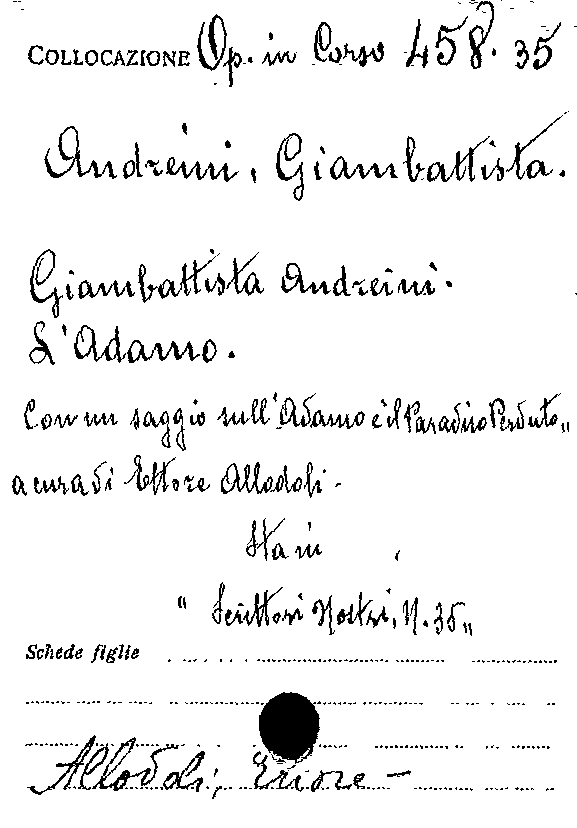 COLLOCAZIONE Op. in Corso 458. 35
Andreini, Giambattista.
Giambattista Andreini.
L'Adamo.
Con un saggio sull'"Adamo e il Paradiso Perduto„
a cura di Ettore Allodoli -
Sta in
"Scrittori Nostri, N. 35„
Schede figlie
Allodoli, Ettore -